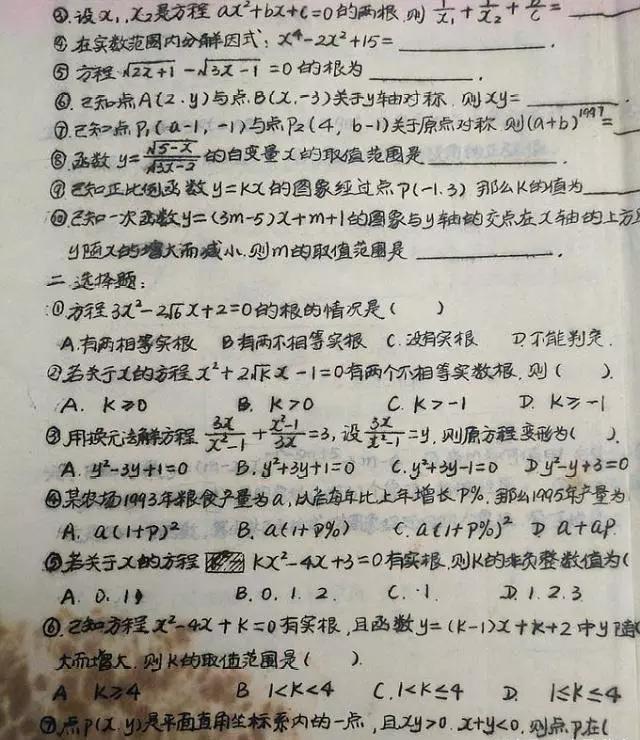 ③.设x₁,x₂是方程 ax²+bx+c=0的两根,则 1/x₁+1/x₂+b/c=
④.在实数范围内分解因式: x⁴-2x²+15=________.
⑤ 方程√2x+1-√3x-1=0的根为________.
⑥.已知点A(2.y)与点.B(x,-3)关于y轴对称.则xy=________
⑦已知点P₁(a-1,-1)与点P₂(4,b-1)关于原点对称.则(a+b)¹⁹⁹⁷=
⑧.函数 y=√5-x/√3x-2 的自变量x的取值范围是________.
⑨已知正比例函数y=kx的图象经过点P(-1.3) 那么k的值为____
⑩已知一次函数y=(3m-5)x+m+1的图象与y轴的交点在x轴的上方
y随x的增大而减小.则m的取值范围是________.
二.选择题:
①方程3x²-2√6x+2=0的根的情况是( )
A.有两相等实根 B有两不相等实根 C.没有实根 D.不能判定.
②若关于x的方程x²+2√kx-1=0有两个不相等实数根,则( ).
A. k≥0 B. k>0 C. k>-1 D. k≥-1
③用换元法解方程 3x/x²-1+x²-1/3x=3,设3x/x²-1=y,则原方程变形为( ).
A. y²-3y+1=0 B. y²+3y+1=0 C. y²+3y-1=0 D y²-y+3=0
④某农场1993年粮食产量为a,以后每年比上年增长P%.那么1995年产量为
A. a(1+P)² B. a(1+P%) C. a(1+P%)² D a+aP.
⑤若关于x的方程 kx²-4x+3=0有实根,则k的非负整数值为(
A. 0.1 B. 0.1.2. C. 1. D. 1.2.3
⑥.已知方程x²-4x+k=0有实根,且函数y=(k-1)x+k+2中y随
大而增大.则k的取值范围是( ).
A k≥4 B 1<k<4 C. 1<k≤4 D. 1≤k≤4
⑦.点P(x.y)是平面直角坐标系内的一点,且xy>0.x+y<0.则点P在(